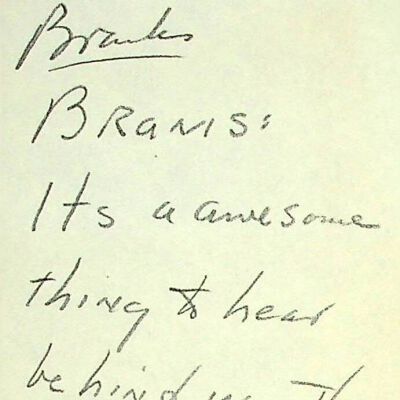 BRAMS:
Its a awesome
thing to hear
behind